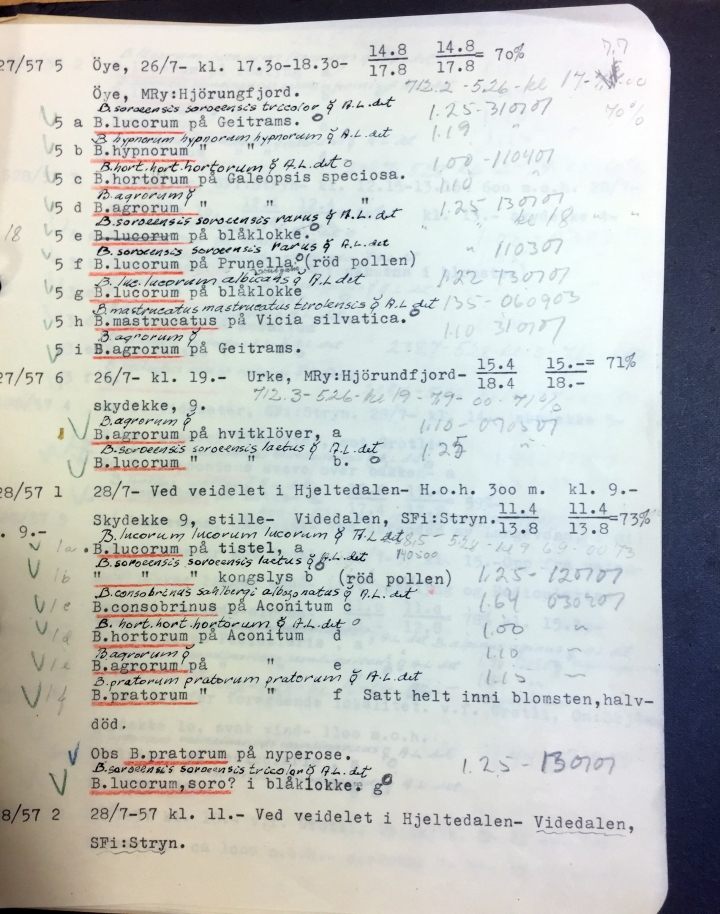 27/57 5 Öye, 26/7- kl. 17.30-18.30- 14.8/17.8 14.8/17.8 = 70% 7.7
Öye, MRy:Hjörungfjord. 712.2-526-kl 17-
B.soroeensis soroeensis tricolor ☿ A.L.det 1.25-310707 70%
5 a B.lucorum på Geitrams.
B.hypnorum hypnorum hypnorum ☿ A.L.det 1.19 "
5 b B.hypnorum " "
B.hort.hort.hortorum ☿ A.L.det 1.00-110407
5 c B.hortorum på Galeopsis speciosa.
B.agrorum ☿ 1.10 "
5 d B.agrorum " " "
B.soroeensis soroeensis rarus ☿ A.L.det 1.25 130707
/8 5 e B.lucorum på blåklokke. " " kl 18 " "
B.soroeensis soroeensis rarus ☿ A.L.det " 110307
5 f B.lucorum på Prunella (röd pollen)
B.luc.lucorum albicans ☿ A.L.det 1.22 730707
5 g B.lucorum på blåklokke
B.mastrucatus mastrucatus tirolensis ☿ A.L.det 135-060903
5 h B.mastrucatus på Vicia silvatica.
B.agrorum ☿ 1.10 310707
5 i B.agrorum på Geitrams.
27/57 6 26/7- kl. 19.- Urke, MRy:Hjörundfjord- 15.4/18.4 15.-/18.- = 71%
712.3-526-kl 19-79-00-71%
skydekke, 9.
B.agrorum ☿ 1.10-070507
B.agrorum på hvitklöver, a
B.soroeensis soroeensis laetus ☿ A.L.det 1.25 "
B.lucorum " " b.
28/57 1 28/7- Ved veidelet i Hjeltedalen- H.o.h. 3oo m. kl. 9.-
Skydekke 9, stille- Videdalen, SFi:Stryn. 11.4/13.8 11.4/13.8 =73%
. 9.- B.lucorum lucorum lucorum ☿ A.L.det
1a. B.lucorum på tistel, a 140500
B.soroeensis soroeensis laetus ☿ A.L.det
1b " " " kongslys b (röd pollen) 1.25-120707
B.consobrinus sahlbergi albozonatus ☿ A.L.det
1c B.consobrinus på Aconitum c 1.64 030207
B.hort.hort.hortorum ☿ A.L.det
1d B.hortorum på Aconitum d 1.00 "
B.agrorum ☿ 1.10 "
1e B.agrorum på " e
B.pratorum pratorum pratorum ☿ A.L.det 1.15 "
1f B.pratorum " " f Satt helt inni blomsten,halv-
död.
Obs B.pratorum på nyperose.
B.soroeensis soroeensis tricolor ☿ A.L.det 1.25-130707
B.lucorum,soro? i blåklokke. g
8/57 2 28/7-57 kl. 11.- Ved veidelet i Hjeltedalen- Videdalen,
SFi:Stryn.